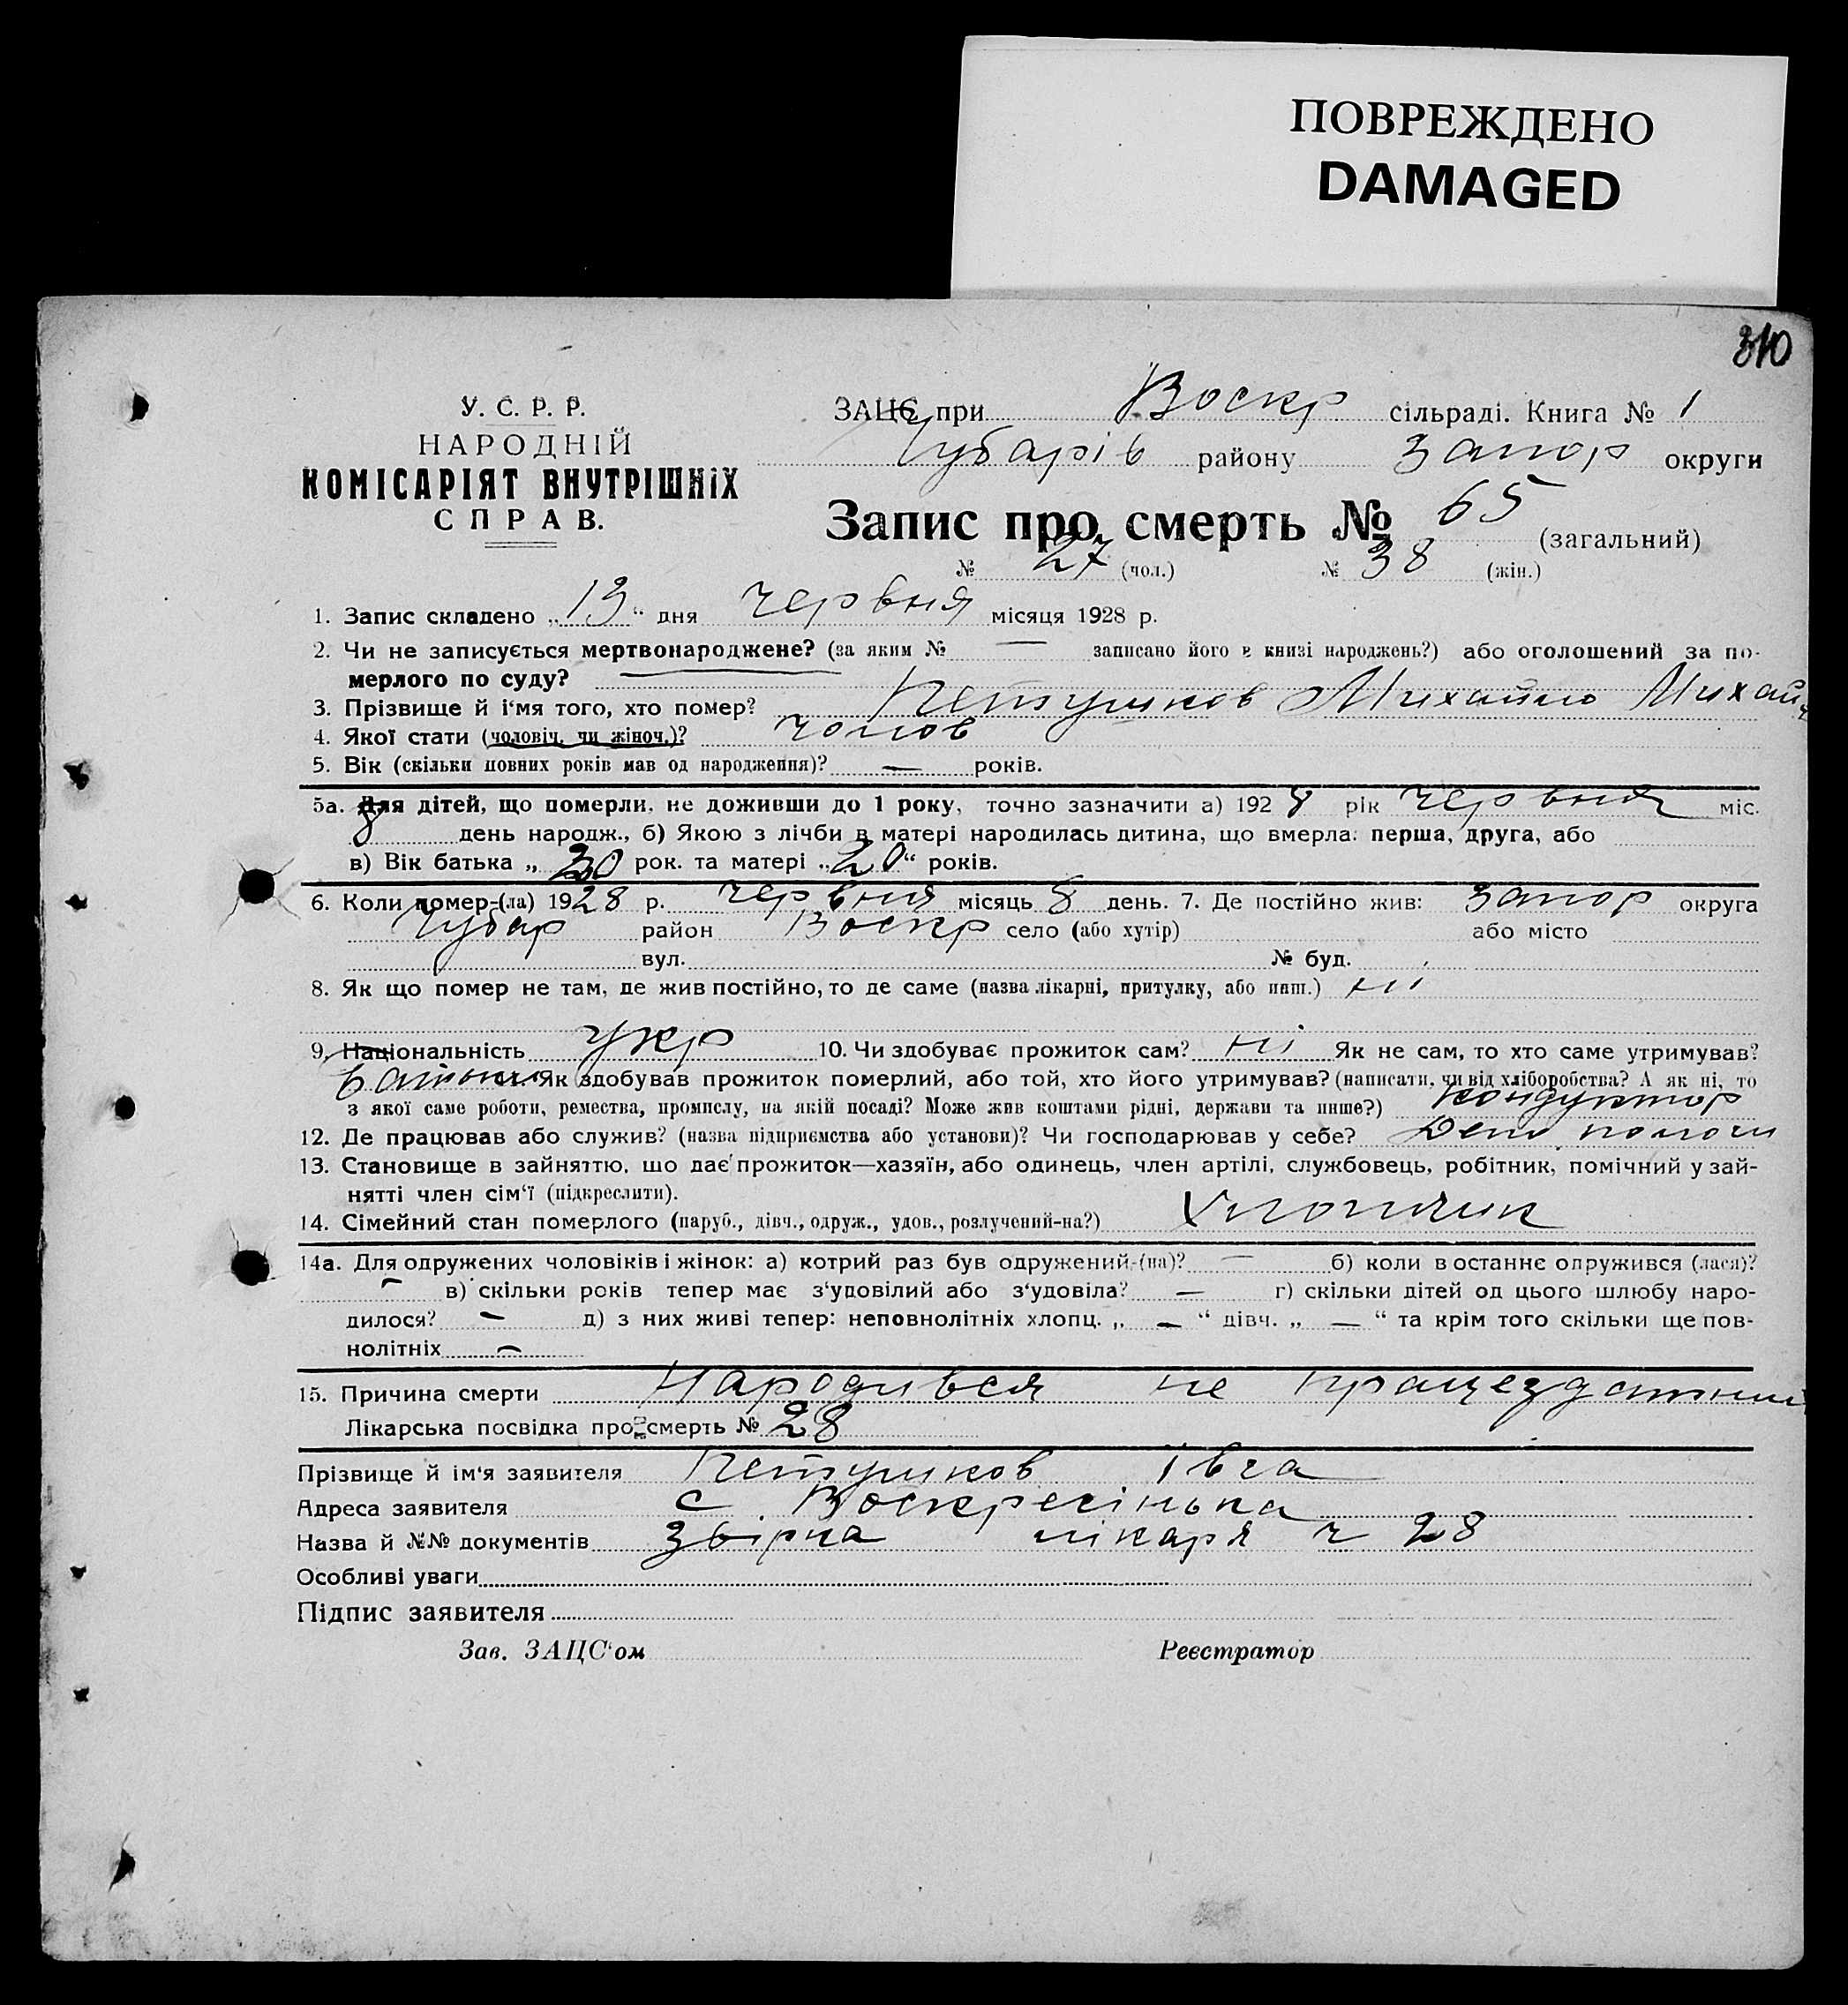 ПОВРЕЖДЕНО
DAMAGED
310
У. С. Р. Р.
НАРОДНІЙ
КОМІСАРІЯТ ВНУТРІШНІХ
СПРАВ.
ЗАЦС при Воскр сільраді. Книга № 1
Чубарів району Запор округи
Запис про смерть № 65 (загальний)
№ 27 (чол.) № 38 (жін.)
1. Запис складено „13“ дня червня місяця 1928 р.
2. Чи не записується мертвонароджене? (за яким № — записано його в книзі народжень?) або оголошений за по-
мерлого по суду? —
3. Прізвище й і'мя того, хто помер? Петушков Михайло Михай
4. Якої стати (чоловіч. чи жіноч.)? чолов
5. Вік (скільки повних років мав од народження)? — років.
5а. Для дітей, що померли, не доживши до 1 року, точно зазначити а) 1928 рік червня міс.
8 день народж., б) Якою з лічби в матері народилась дитина, що вмерла: перша, друга, або
в) Вік батька „30 рок. та матері „20“ років.
6. Коли помер-(ла) 1928 р. червня місяць 8 день. 7. Де постійно жив: Запор округа
Чубар район Воскр село (або хутір) або місто
вул. № буд.
8. Як що помер не там, де жив постійно, то де саме (назва лікарні, притулку, або инш.) ні
9. Національність укр 10. Чи здобуває прожиток сам? ні Як не сам, то хто саме утримував?
батьки Як здобував прожиток померлий, або той, хто його утримував? (написати, чи від хліборобства? А як ні, то
з якої саме роботи, ремества, промислу, на якій посаді? Може жив коштами рідні, держави та инше?) кондуктор
12. Де працював або служив? (назва підприємства або установи)? Чи господарював у себе? Депо
13. Становище в зайняттю, що дає прожиток—хазяїн, або одинець, член артілі, службовець, робітник, помічний у зай-
нятті член сім'ї (підкреслити).
14. Сімейний стан померлого (паруб., дівч., одруж., удов., розлучений-на?) Хлопчик
14а. Для одружених чоловіків і жінок: а) котрий раз був одружений-(на)? — б) коли востаннє одружився (лася)?
— в) скільки років тепер має з'удовілий або з'удовіла? — г) скільки дітей од цього шлюбу наро-
дилося? — д) з них живі тепер: неповнолітніх хлопц. „ — “ дівч. „ — “ та крім того скільки ще пов-
нолітніх —
15. Причина смерти Народився не працездатний
Лікарська посвідка про смерть № 28
Прізвище й ім'я заявителя Петушков Івга
Адреса заявителя с Воскресінька
Назва й №№ документів Збірка лікаря ч 28
Особливі уваги
Підпис заявителя
Зав. ЗАЦС'ом Реєстратор